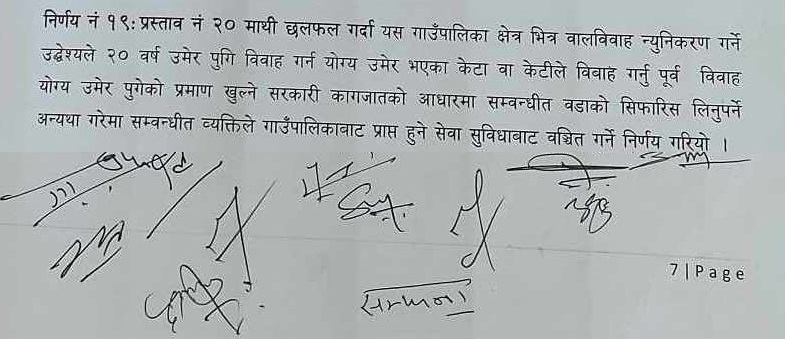 निर्णय नं १९: प्रस्ताव नं २० माथी छलफल गर्दा यस गाउँपालिका क्षेत्र भित्र वालविवाह न्युनिकरण गर्ने
उद्धेश्यले २० वर्ष उमेर पुगि विवाह गर्न योग्य उमेर भएका केटा वा केटीले विवाह गर्नु पूर्व विवाह
योग्य उमेर पुगेको प्रमाण खुल्ने सरकारी कागजातको आधारमा सम्वन्धीत वडाको सिफारिस लिनुपर्ने
अन्यथा गरेमा सम्वन्धीत व्यक्तिले गाउँपालिकावाट प्राप्त हुने सेवा सुविधाबाट वञ्चित गर्ने निर्णय गरियो ।
7 | P a g e